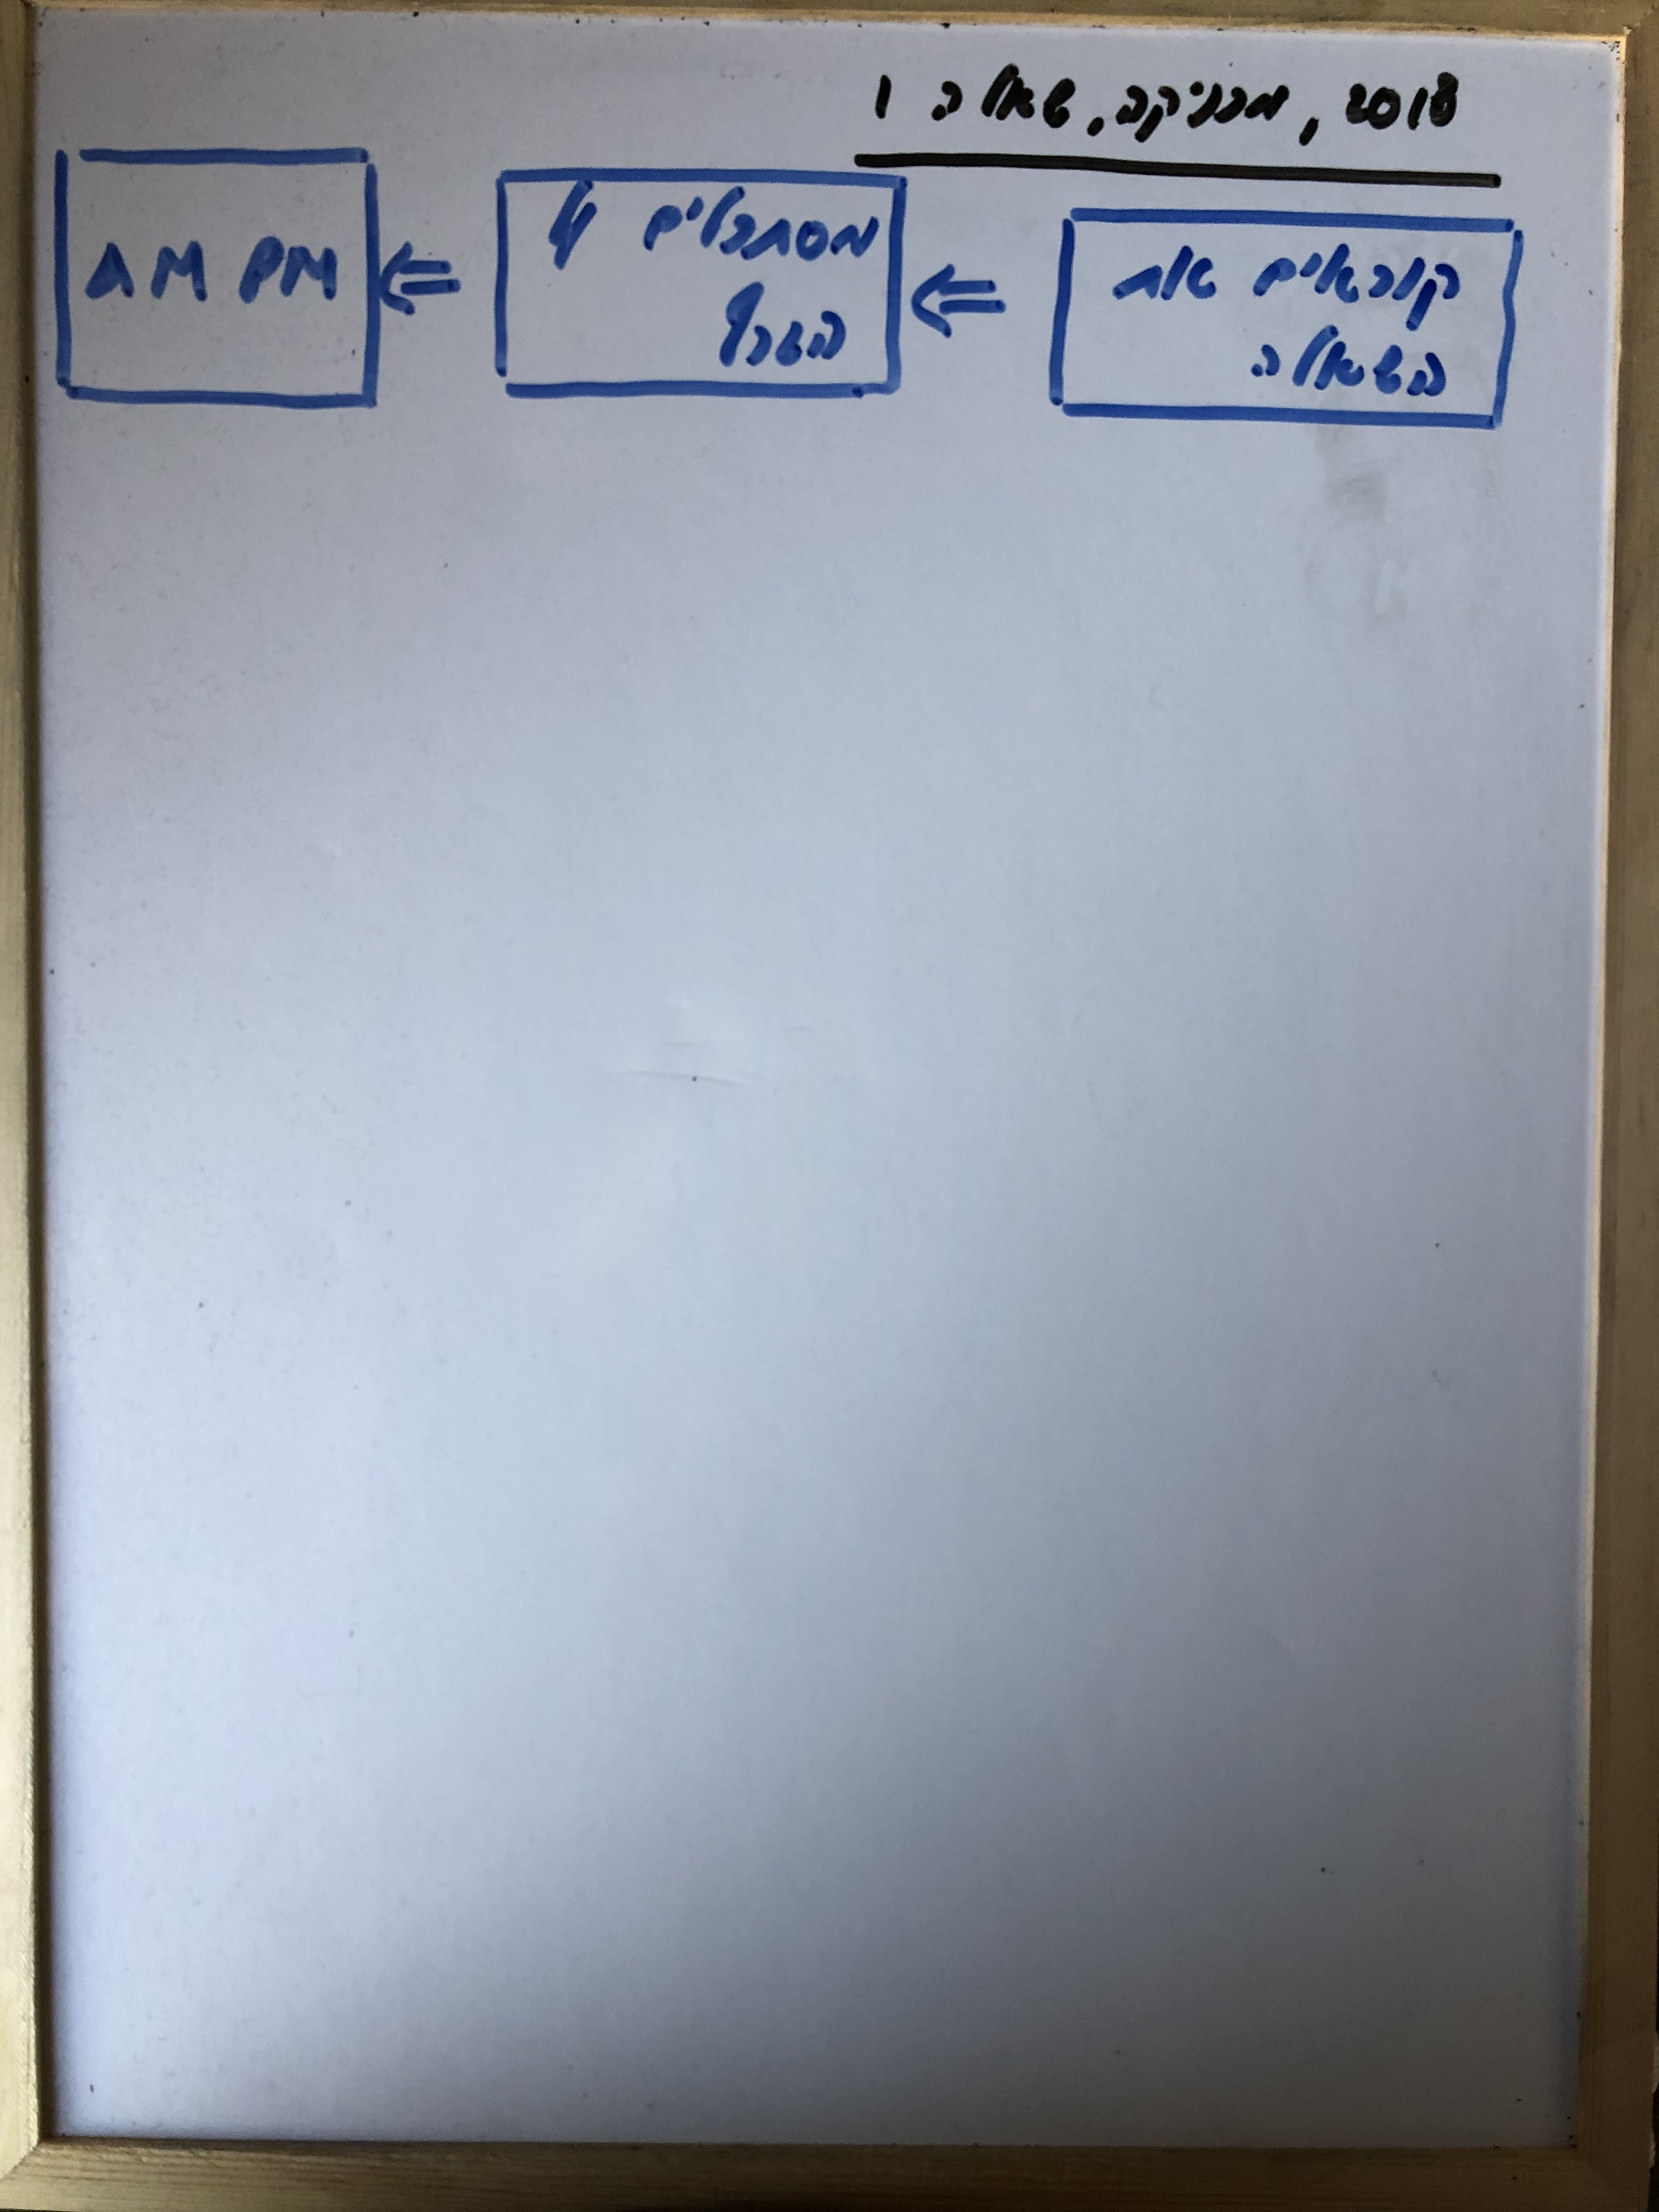 2018, מכניקה, שאלה 1
קוראים את
השאלה
⇐
מסתכלים על
הגרף
⇐
AM PM